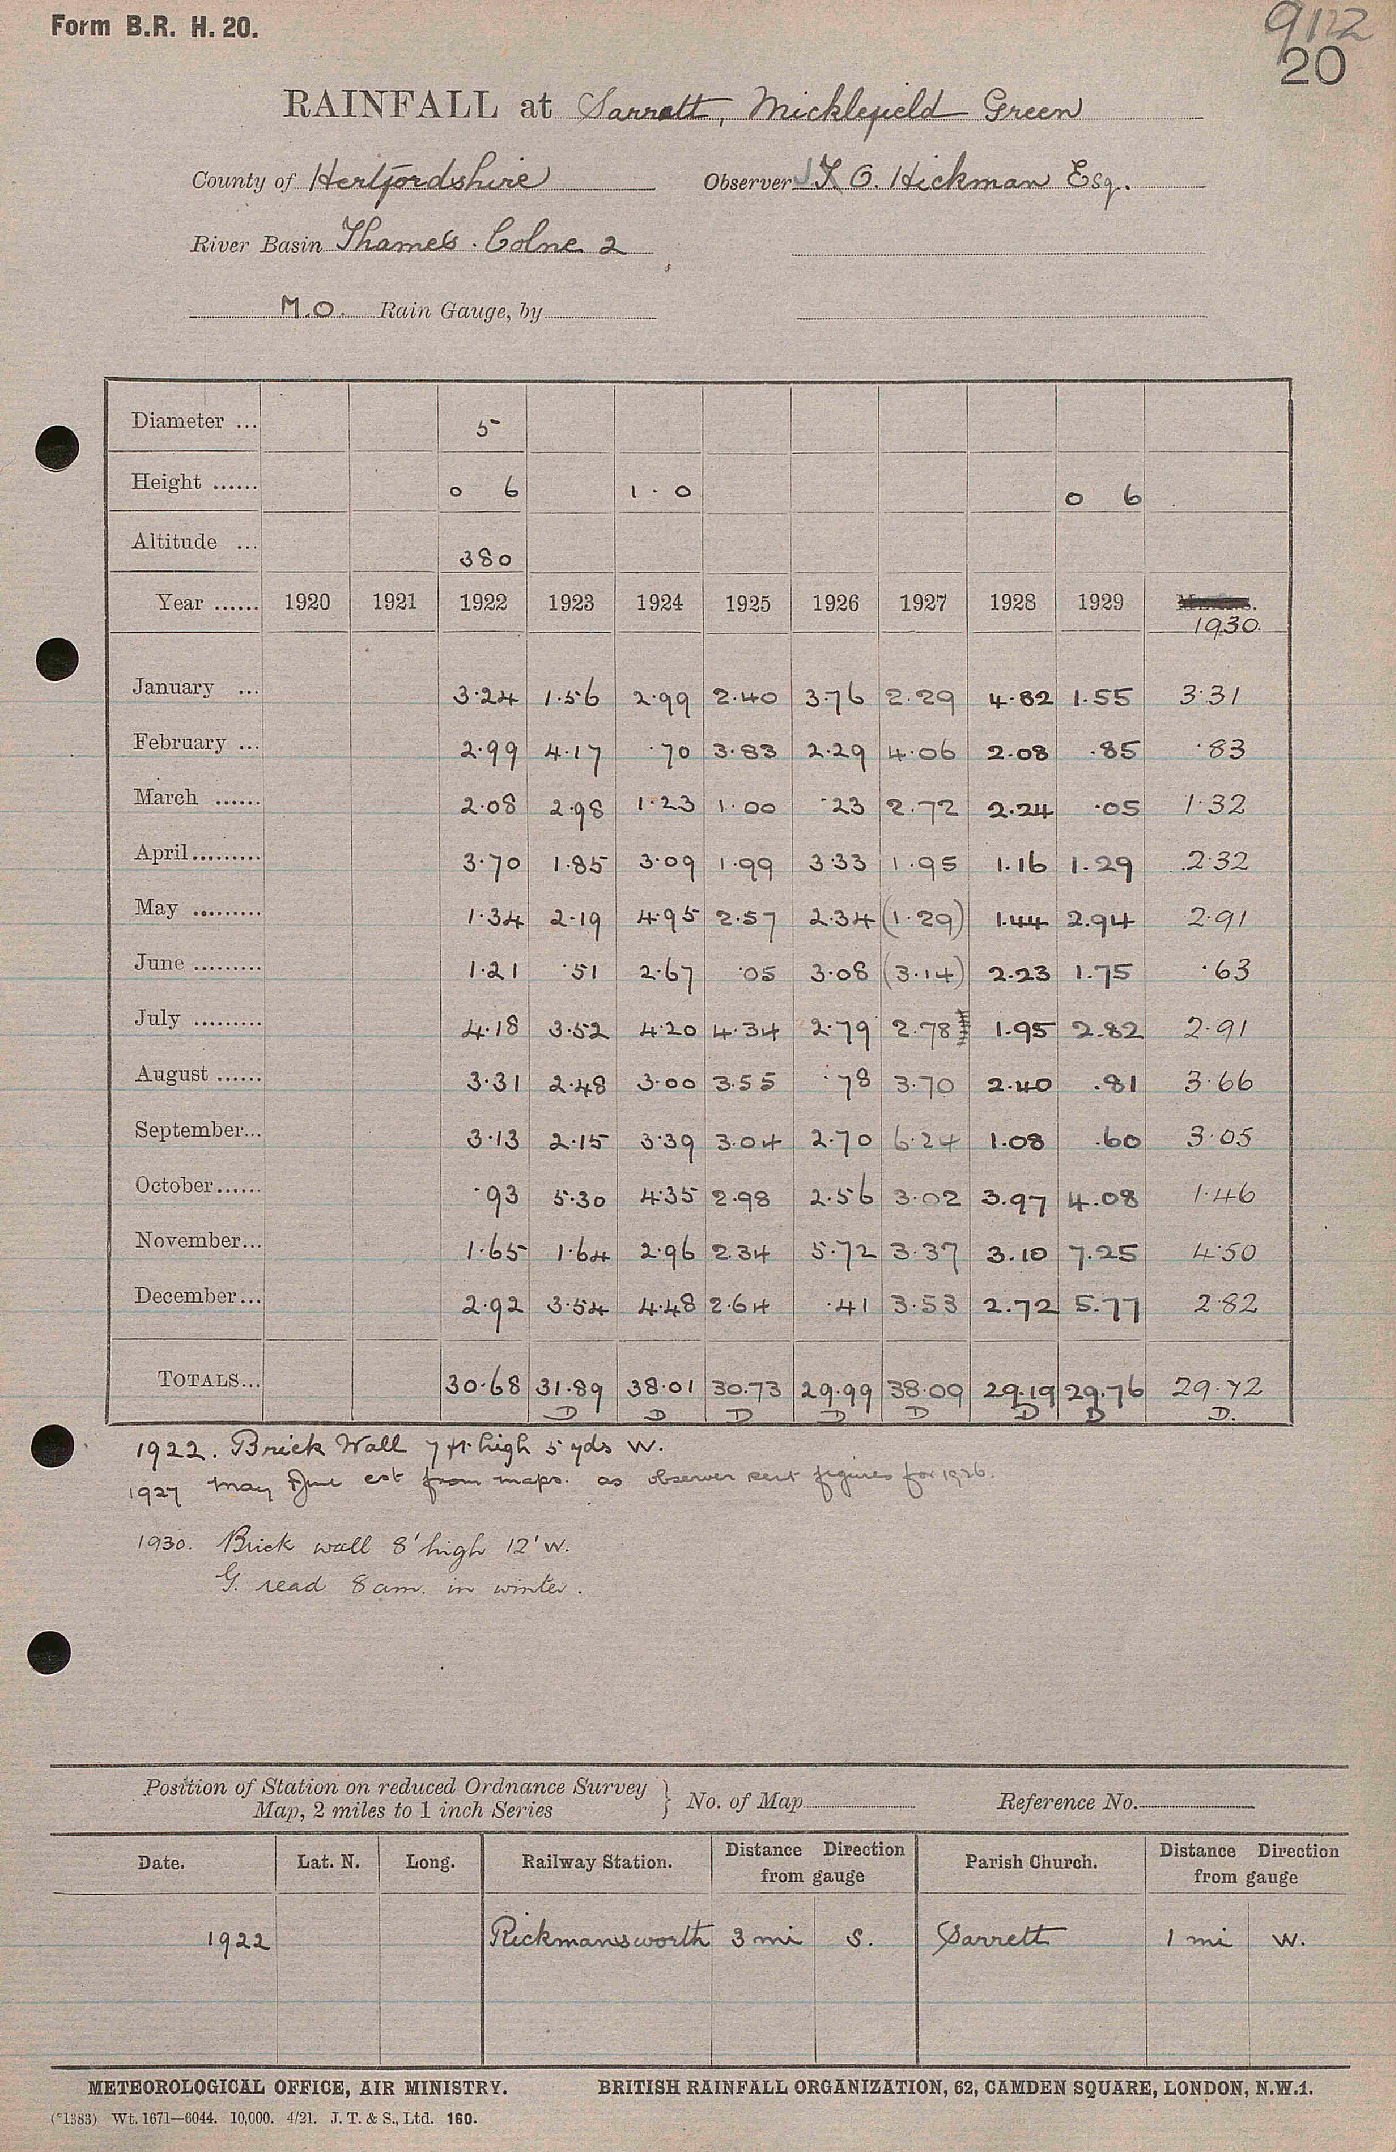 Form B.R. H. 20.
9122
20
RAINFALL at Sarratt, Micklefield Green
County of Hertfordshire Observer J O. Hickman Esq.
River Basin Thames. Colne 2
M.O. Rain Gauge, by
Diameter ... 5
Height ...... 0 6 1 . 0 0 6
Altitude ... 380
Year ...... 1920 1921 1922 1923 1924 1925 1926 1927 1928 1929 1930
January ... 3.24 1.56 2.99 2.40 3.76 2.29 4.82 1.55 3.31
February ... 2.99 4.17 .70 3.83 2.29 4.06 2.08 .85 .83
March ...... 2.08 2.98 1.23 1.00 .23 2.72 2.24 .05 1.32
April......... 3.70 1.85 3.09 1.99 3.33 1.95 1.16 1.29 2.32
May ......... 1.34 2.19 4.95 2.57 2.34 (1.29) 1.44 2.94 2.91
June ......... 1.21 .51 2.67 .05 3.08 (3.14) 2.23 1.75 .63
July ......... 4.18 3.52 4.20 4.34 2.79 2.78 1.95 2.82 2.91
August ...... 3.31 2.48 3.00 3.55 .78 3.70 2.40 .81 3.66
September... 3.13 2.15 3.39 3.04 2.70 6.24 1.08 .60 3.05
October...... .93 5.30 4.35 2.98 2.56 3.02 3.97 4.08 1.46
November... 1.65 1.64 2.96 2.34 5.72 3.37 3.10 7.25 4.50
December... 2.92 3.54 4.48 2.64 .41 3.53 2.72 5.77 2.82
TOTALS... 30.68 31.89 38.01 30.73 29.99 38.09 29.19 29.76 29.72
D D D D D D D D.
1922. Brick Wall 7 ft. high 5 yds W.
1927 May June est from maps. as observer sent figures for 1926.
1930. Brick wall 8' high 12' W.
G. read 8 am. in winter.
Position of Station on reduced Ordnance Survey
Map, 2 miles to 1 inch Series } No. of Map Reference No.
Date. Lat. N. Long. Railway Station. Distance Direction from gauge Parish Church. Distance Direction from gauge
1922 Rickmansworth 3 mi S. Sarrett 1 mi W.
METEOROLOGICAL OFFICE, AIR MINISTRY. BRITISH RAINFALL ORGANIZATION, 62, CAMDEN SQUARE, LONDON, N.W.1.
(*1383) Wt. 1671—6044. 10,000. 4/21. J. T. & S., Ltd. 160.